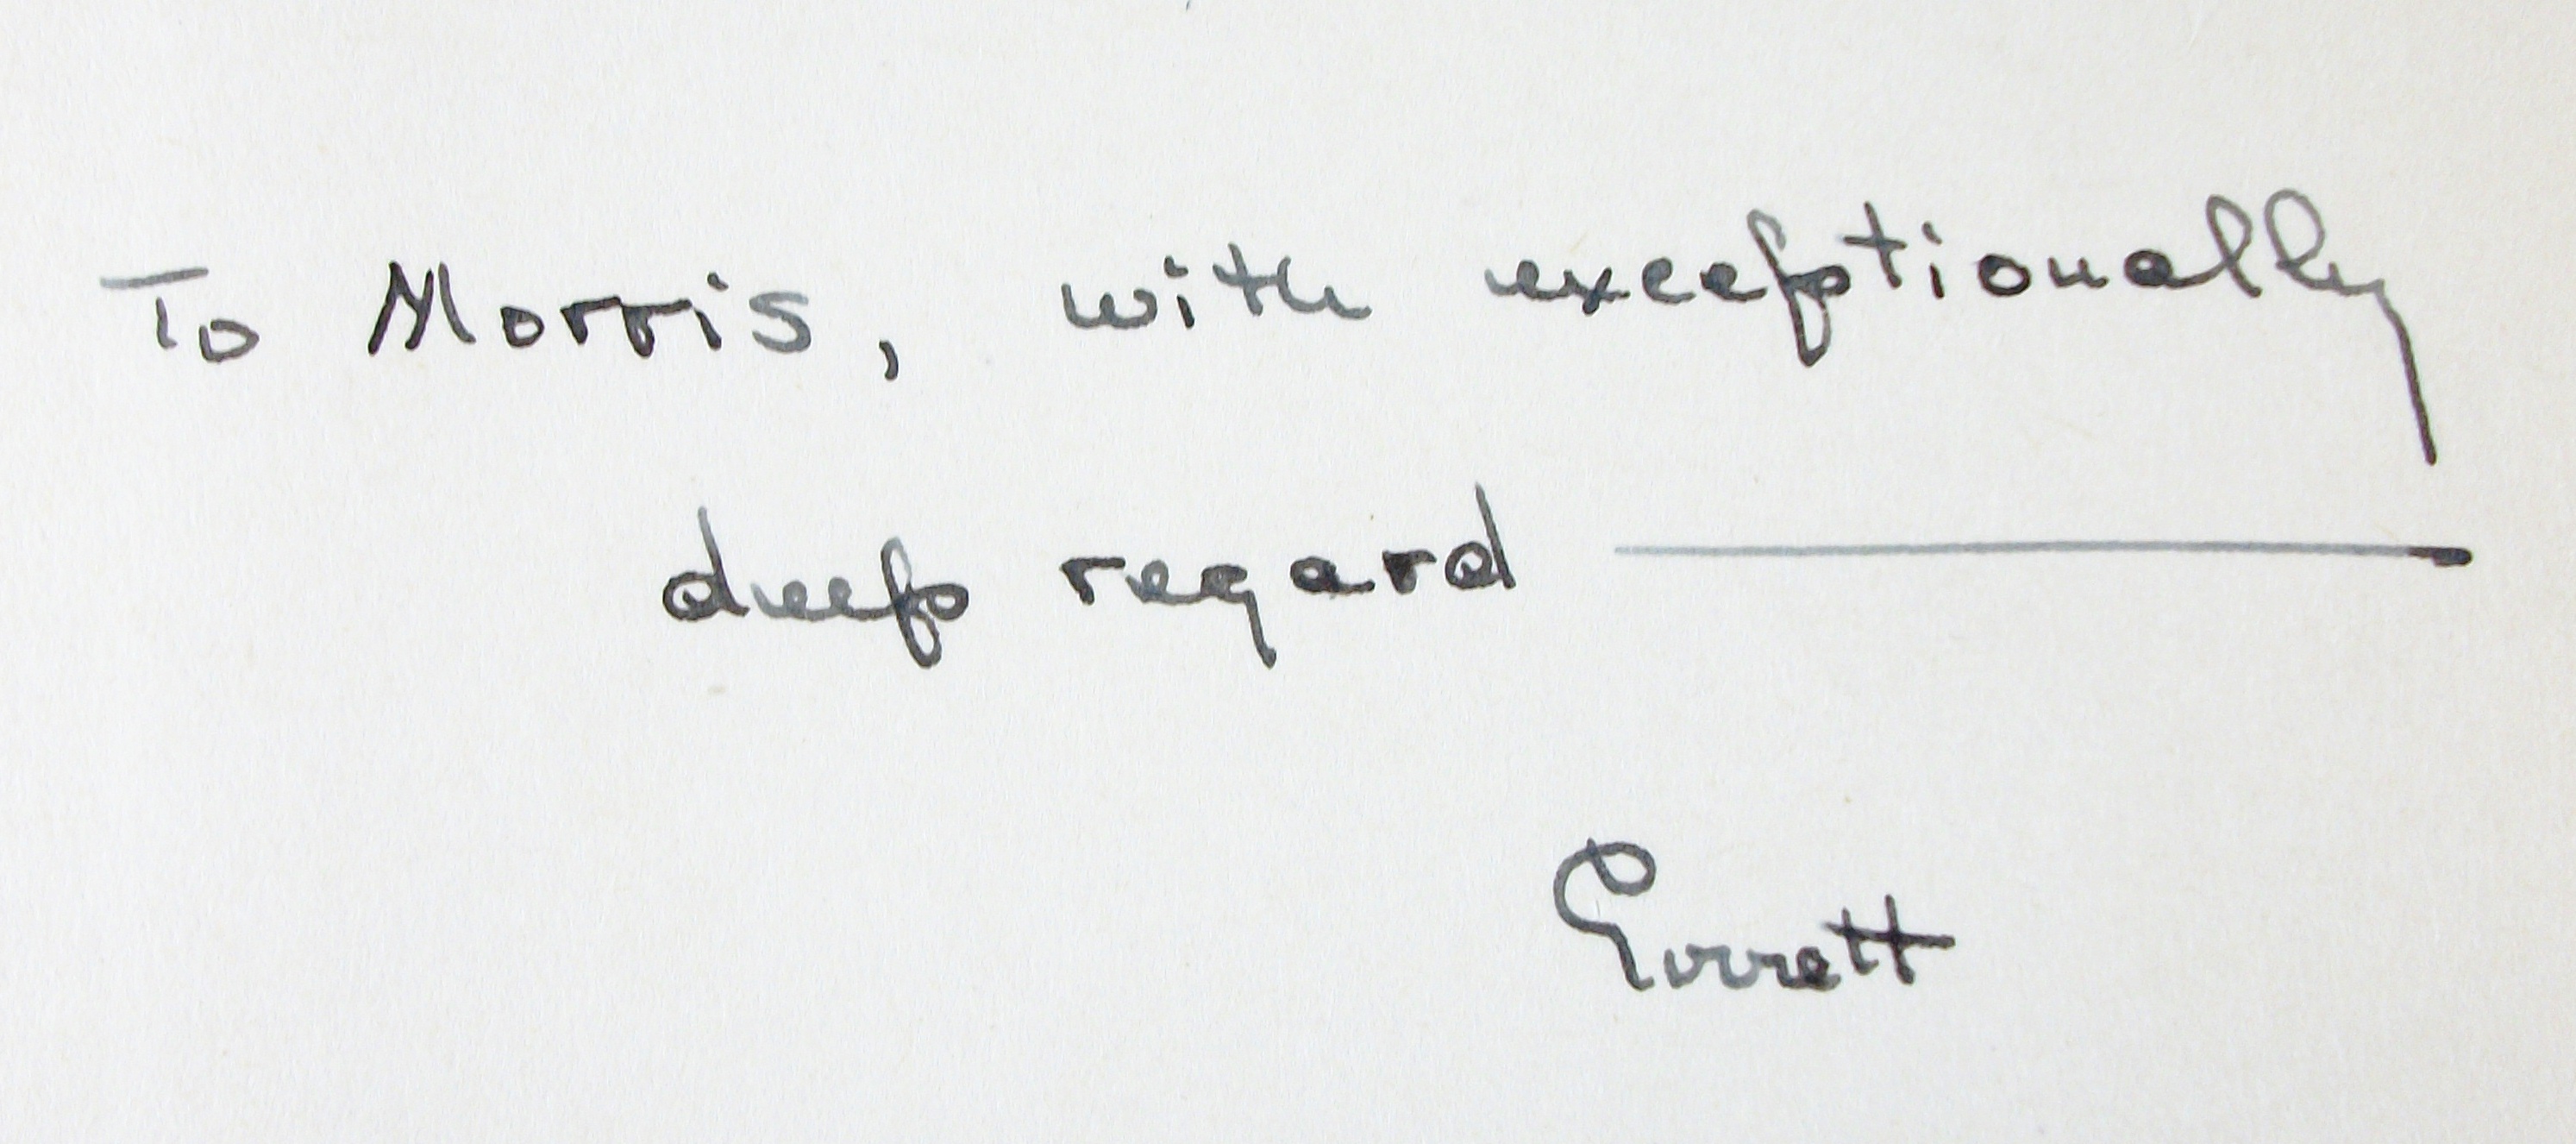 To Morris, with exceptionally
deep regard —
Everett